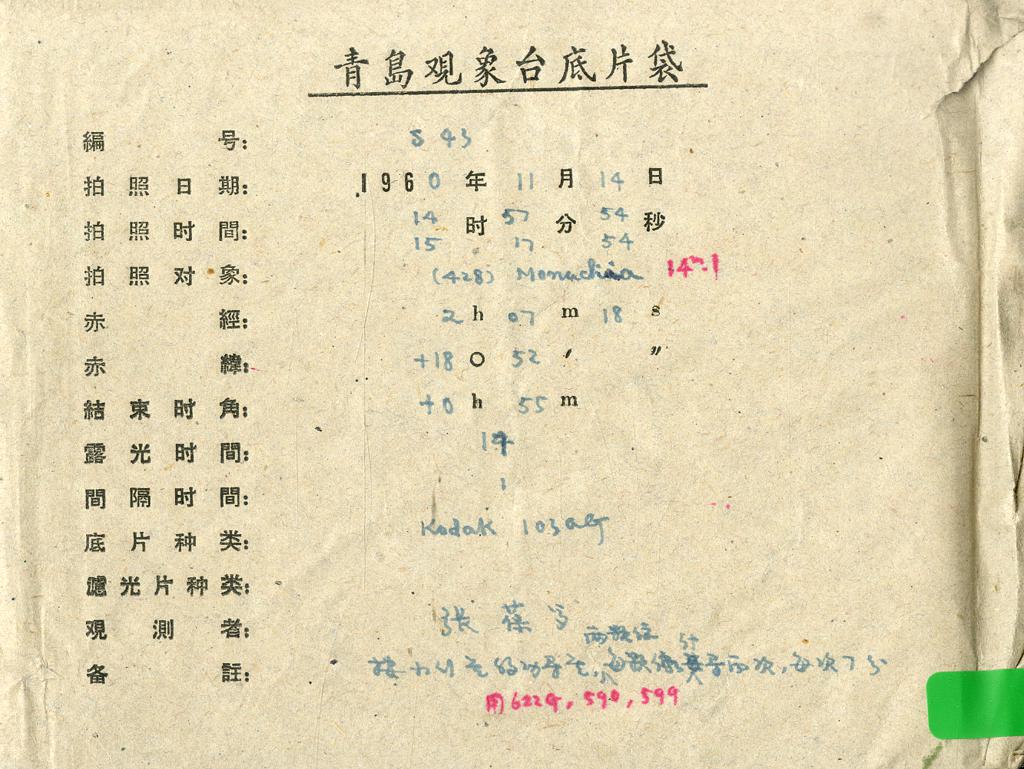 青島观象台底片袋
編号: S 43
拍照日期: 1960年11月14日
拍照时間: 14时57分54秒
15 17 54
拍照对象: (428) Monachia 14ᵐ.1
赤經: 2h 07m 18s
赤緯: +18° 52′ ″
結束时角: +0h 55m
露光时間: 14
間隔时間: 1
底片种类: Kodak 103aG
濾光片种类:
观測者: 張葆
备註:
每次7分
用622G, 590, 599